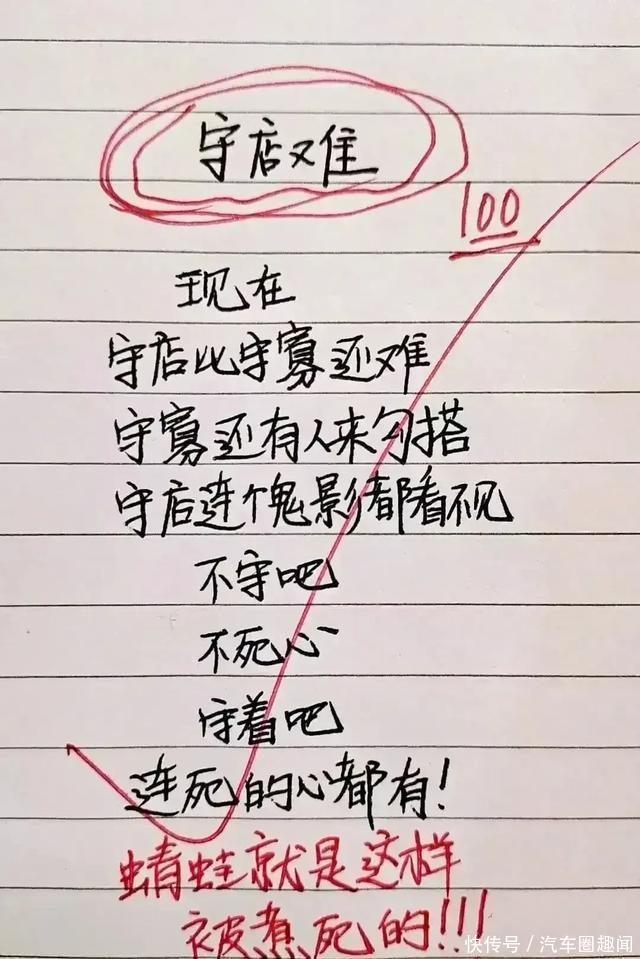 守店难
100
现在
守店比守寡还难
守寡还有人来勾搭
守店连个鬼影都看不见
不守吧
不死心
守着吧
连死的心都有!
蜻蛙就是这样
被煮死的!!!
快传号/汽车圈趣闻